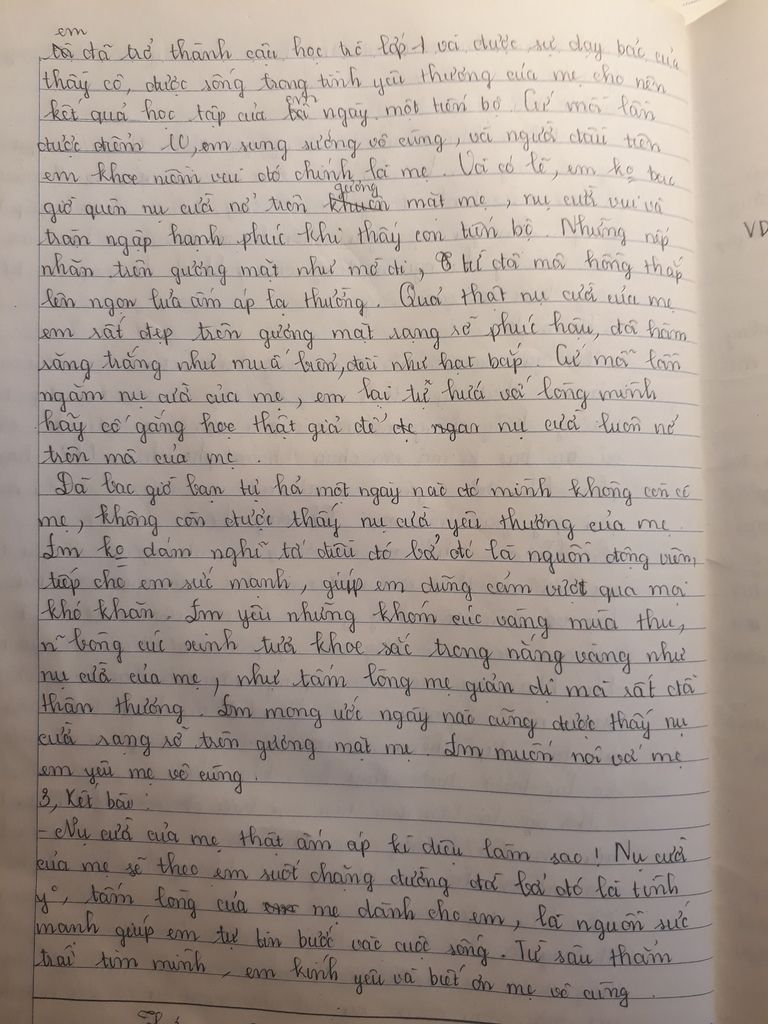 em
đã trở thành cậu học trò lớp 1 và được sự dạy bảo của
thầy cô, được sống trong tình yêu thương của mẹ cho nên
kết quả học tập của em ngày một tiến bộ. Cứ mỗi lần
được điểm 10, em sung sướng vô cùng, và người đầu tiên
em khoe niềm vui đó chính là mẹ. Và có lẽ, em ko bao
giờ quên nụ cười nở trên gương mặt mẹ, nụ cười vui và
tràn ngập hạnh phúc khi thấy con tiến bộ. Những nếp
nhăn trên gương mặt như mờ đi, đôi má hồng thắp
lên ngọn lửa ấm áp lạ thường. Quả thật nụ cười của mẹ
em rất đẹp trên gương mặt rạng rỡ phúc hậu, đôi hàm
răng trắng như muối biển, đều như hạt bắp. Cứ mỗi lần
ngắm nụ cười của mẹ, em lại tự hứa với lòng mình
hãy cố gắng học thật giỏi để nụ cười luôn nở
trên môi của mẹ.
Đã bao giờ bạn tự hỏi một ngày nào đó mình không còn có
mẹ, không còn được thấy nụ cười yêu thương của mẹ.
Em ko dám nghĩ tới điều đó bởi đó là nguồn động viên,
tiếp cho em sức mạnh, giúp em dũng cảm vượt qua mọi
khó khăn. Em yêu những khóm cúc vàng mùa thu,
n~ bông cúc xinh tươi khoe sắc trong nắng vàng như
nụ cười của mẹ, như tấm lòng mẹ giản dị mà rất đỗi
thân thương. Em mong ước ngày nào cũng được thấy nụ
cười rạng rỡ trên gương mặt mẹ. Em muốn nói với mẹ
em yêu mẹ vô cùng.
3, Kết bài:
- Nụ cười của mẹ thật ấm áp kì diệu làm sao! Nụ cười
của mẹ sẽ theo em suốt chặng đường đời bởi đó là tình
y°, tấm lòng của mẹ dành cho em, là nguồn sức
mạnh giúp em tự tin bước vào cuộc sống. Từ sâu thẳm
trái tim mình, em kính yêu và biết ơn mẹ vô cùng.
VD